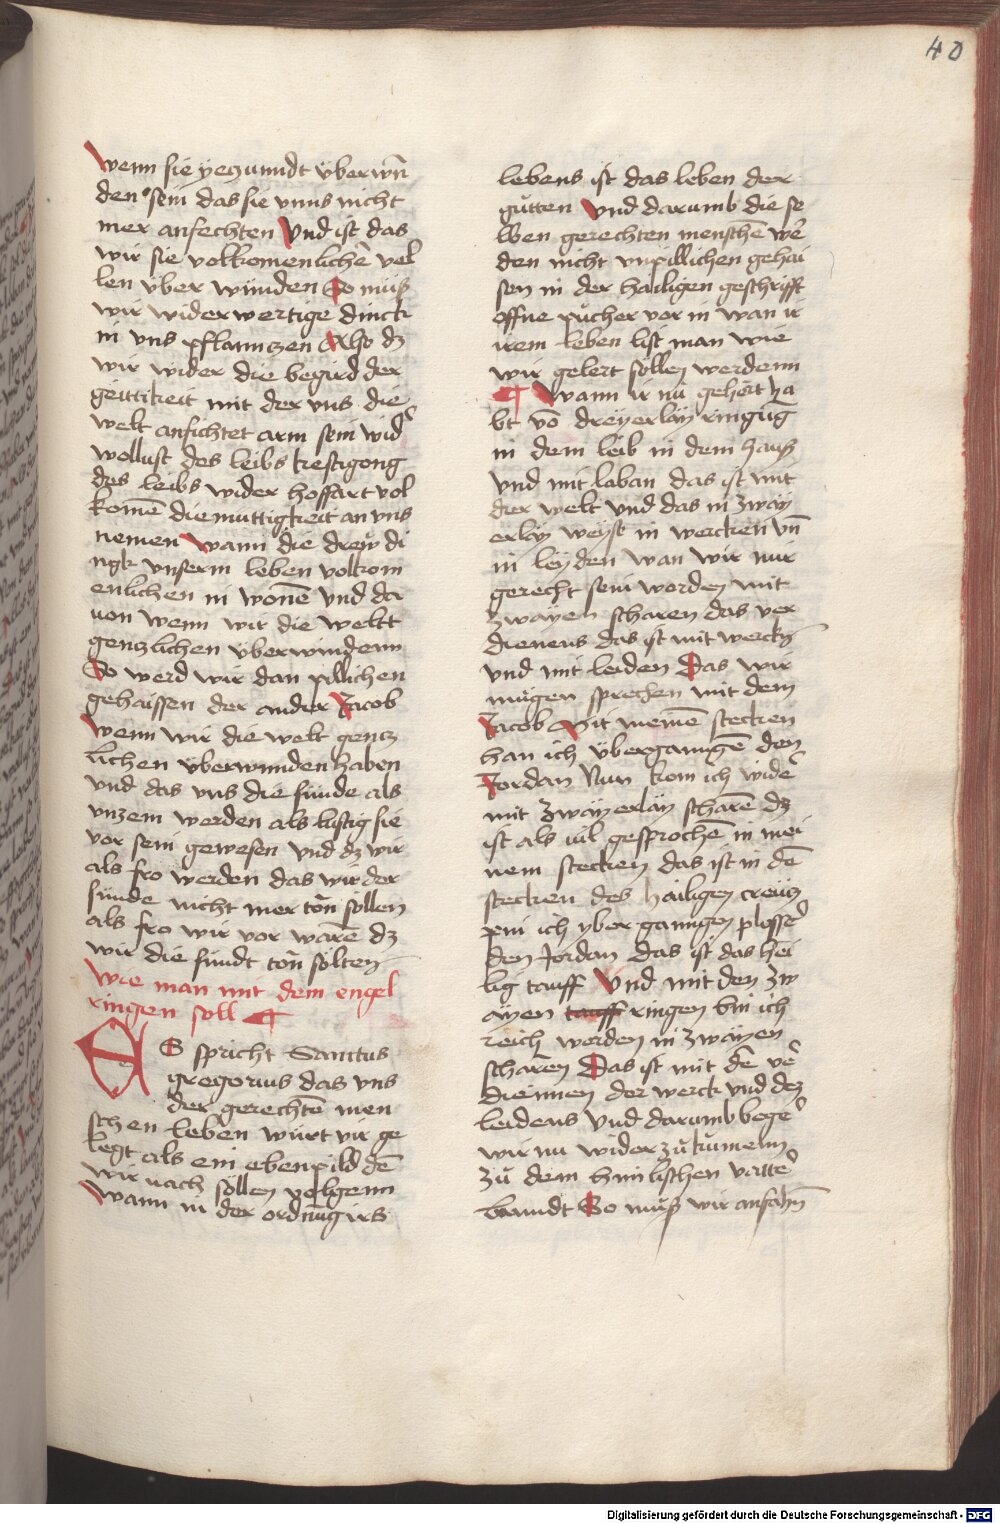 40
wenn sie yeczunndt vͤberwn̄
den sein das sie vnns nicht
mer anfechten Vnd ist das
wir sie volkomenlichē vel
len vͤber winnden So muß
wir widerwertige dinck
in vns pflanntzen Also dz
wir wider die begird der
geittikeit mit der vns die
welt anfichtet arm sein wid̾
wollust des leibs kestigong
des leibs wider hoffart vol
komē diemuttigkeit an vns
nemen wann die drew di
ngk vnserm leben volkom
enlichen in wonē vnd da
uon wenn wir die weltt
gentzlichen vͤberwindenn
So werd wir dan pillichen
gehaissen der ander Jacob
wenn wir die welt gentz
lichen vͤberwunden haben
vnd das vns die sunde als
vnzem werden als lustig sie
vor sein gewesen vnd dz wir
als fro werden das wir der
sunde nicht mer ton sollen
als fro wir vor warē dz
wir die sundt ton solten
wie man mit dem engel
ringen soll ¶
ES spricht Sannctus
gregorius das vns
der gerechtē men
schen leben wurt vir ge
legt als ein ebenpild dē
wir nach sollen volgenn
wann in der ordnūg irs
lebens ist das leben der
guͦtten Vnd darumb die se
lben gerechten menschē wē
den nicht vnpillichen gehai
sen in der hailigen geschrifft
offne puͤcher vor in wan ir
irem leben list man wie
wir gelert sollen werdenn
¶ Wann ir nuͦ gehort ha
bt vō dreyerlay ringūg
in dem leib in dem hauß
vnd mit laban das ist mit
der welt vnd das in zway
erlay weyst in wercken vn̄
in leyden wan wir nur
gerecht sein worden mit
zwayen scharen das ver
dienens das ist mit werckn̄
vnd mit leiden Das wir
muͤgen sprechen mit dem
Jacob Mit meinē stecken
han ich vͤbergangē den
Jordan Nun kom ich wide̾
mit zwayerlay scharē dz
ist als vil gesprochē in mei
nem stecken das ist in dē
stecken des hailigen creutz
pin ich yber gangen plosse̾
den Jordan Das ist das hei
lig tauff Vnd mit den zw
ayen tauff ringen bin ich
reich worden in zwayen
scharen Das ist mit dē ve̾
diennen der werck vnd dez
leidens Vnd darumb bege̾
wir nu wider zuͦ kuͤmenn
zuͦ dem himlischen vatte̾
lanndt So muͤß wir anfahn̄
Digitalisierung gefördert durch die Deutsche Forschungsgemeinschaft - DFG